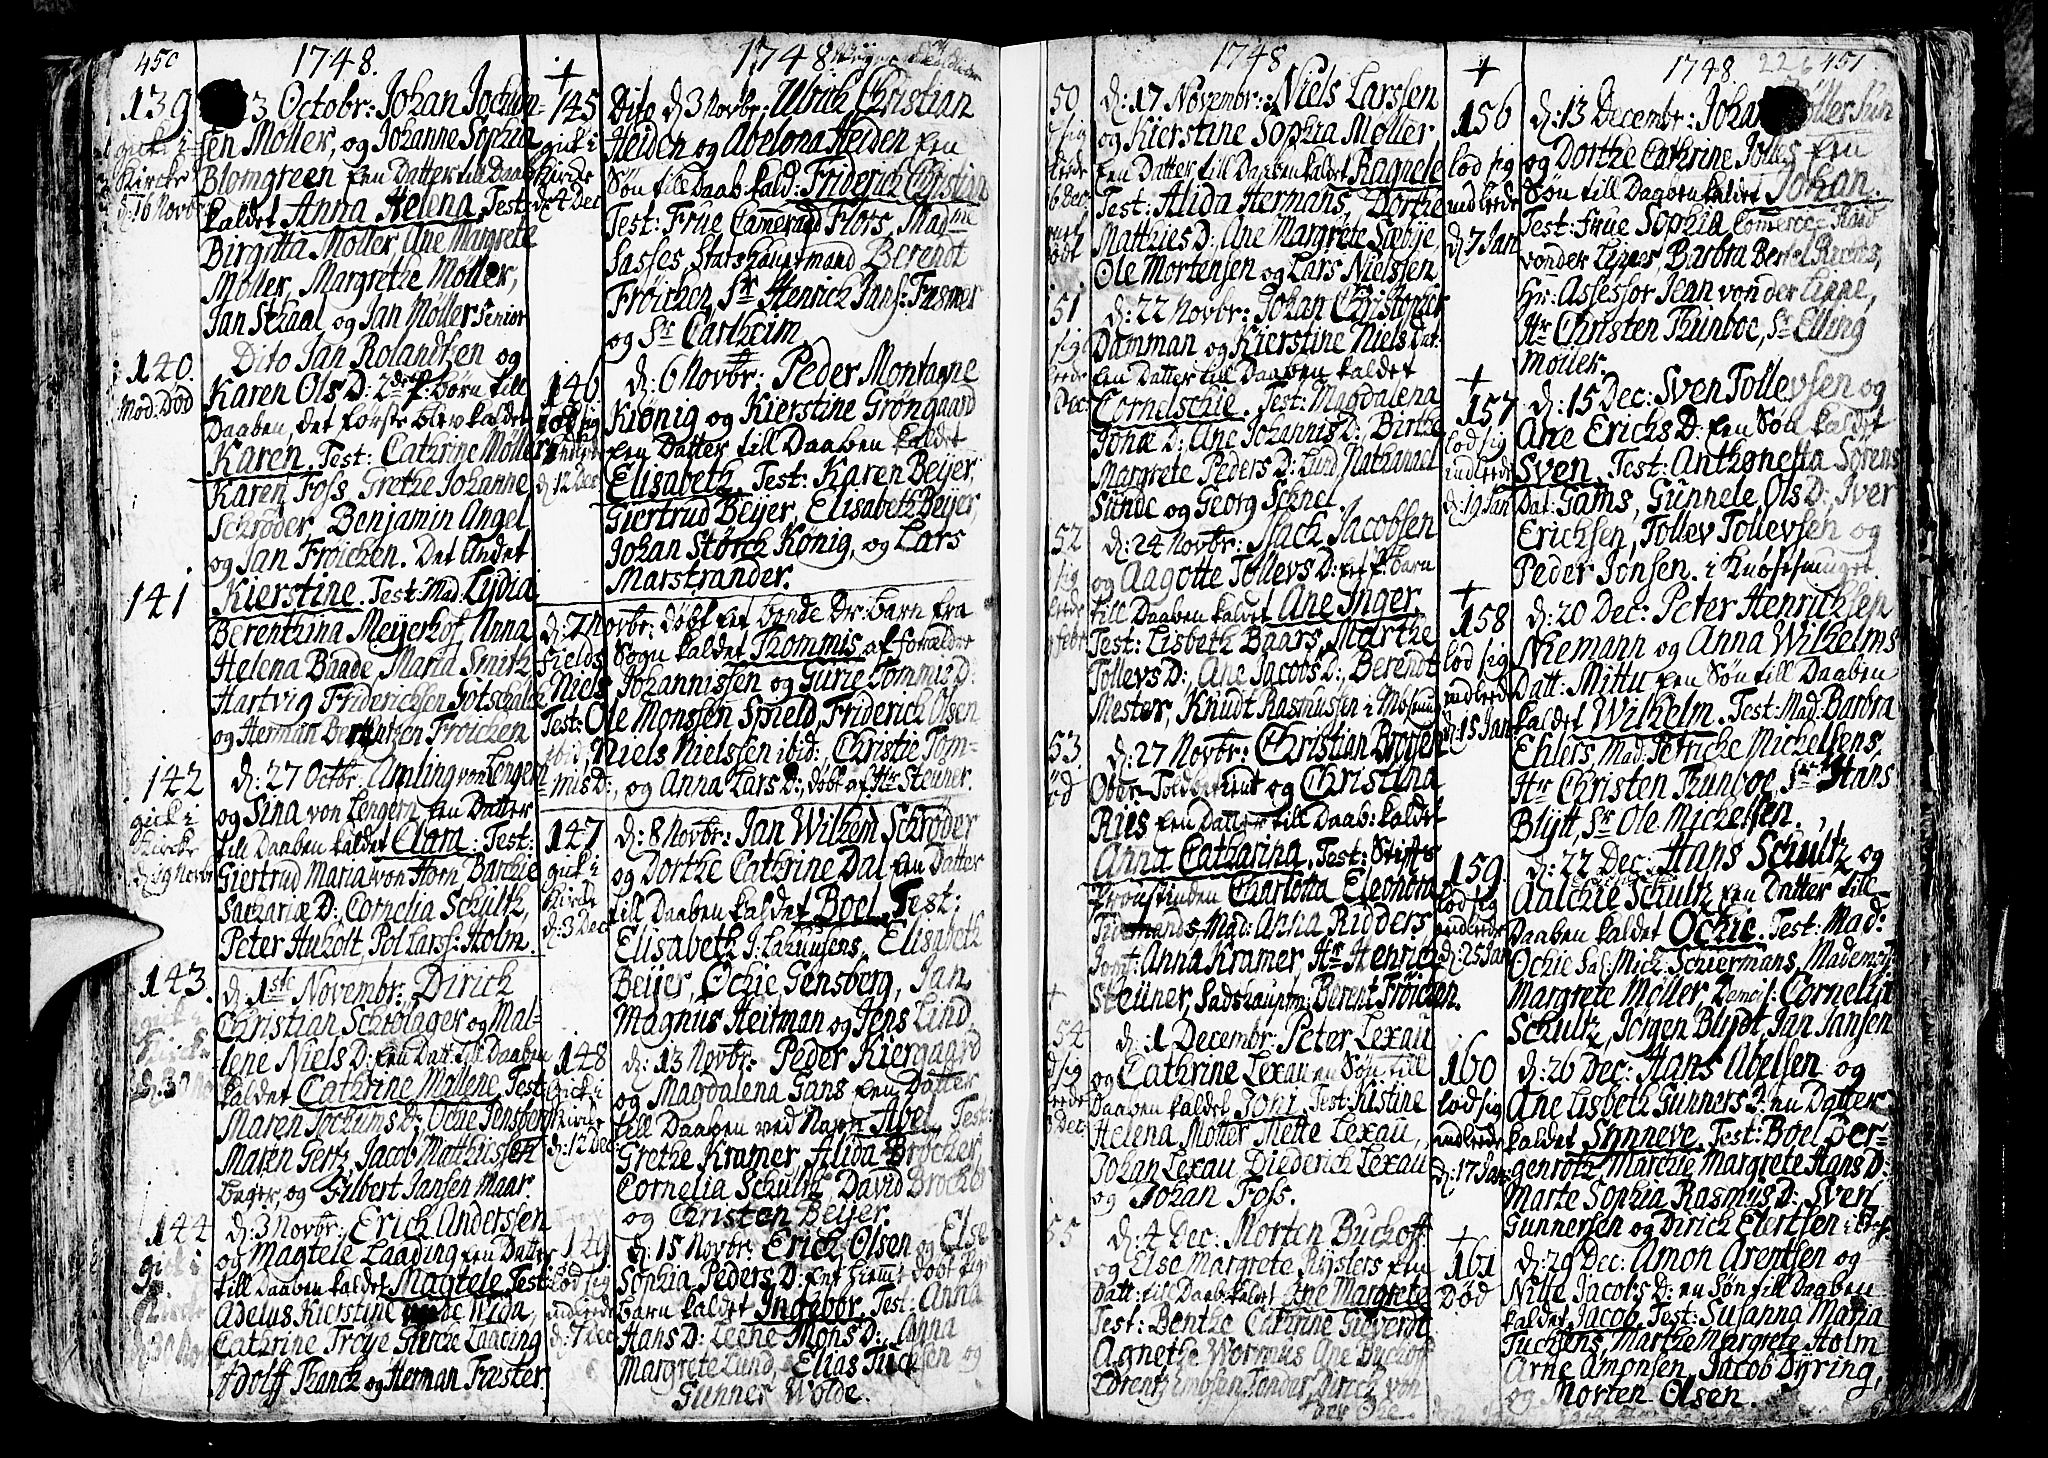 450
1748.
139
gick i
Kircke
d: 16 Novbr
3 Octobr: Johan Jochum-
sen Møller, og Johanne Sophia
Blomgreen een Datter till Daab
kaldet Anna Helena, Test:
Birgitta Møller, Ane Margrete
Møller, Margrethe Møller,
Jan Schaal, og Jan Møller Senior
140.
Mod: Død
Dito Jan Rolandtsen og
Karen Ols D: 2de p: børn till
Daaben, det første blev kaldet
Karen, Test: Cathrine Møller
Karen Foss, Grethe Johanne
Schrøder, Benjamin Angel
og Jan Frøichen. Det Andet
141
Kierstine. Test: Mad: Lydia
Berenthina Meijerhof, Anna
Helena Baade, Maria Smith,
Hartvig Friderichsen Gotschalk
og Herman Berentzen Frøichen
142
gick i
Kircke
d: 19 Novbr
d: 27 Octbr: Amling von Lengern
og Sina von Lengern een Datter
till Daaben kaldet Clara. Test:
Giertrud Maria von Horn Barchie
Sachariæ D: Cornelia Schultz,
Peter Huholt, Pol Lars: Holm.
143.
gick i
Kircke
d: 30 No
d: 1ste Novembr: Dirich
Christian Schrølager og Mal-
lene Niels D: een Datt: till Daaben
kaldet Cathrine Mallene, Test:
Maren Jochums D: Ochie Jensberg
Maren Gertz, Jacob Matthiessen
bager, og Gilbert Jansen Maar.
144
gick i
Kircke
d: 30 No
d: 3 Novbr: Erich Andersen
og Magtele Laading een Datter
till Daaben kaldet Magtele Test:
Adelus Kierstine von de Wida,
Cathrine Troye Gercke Laading
Adolff Franck og Herman Frester.
1748
145
gick i
Kircke
d: 4 Dec
Dito d: 3 Novbr: Ulrich Christian
Heiden og Abelona Heiden een
Søn till Daab: kald: Friderich Christian
Test: Frue Cameraad Flors, Madme
Sasses, Stats hauptmand Berendt
Frøichen, Sr Henrich Jans: Fasmer
og Sr Carlheim
146
lod sig
indlede
d: 12 Dec
d: 6 Novbr: Peder Montagne
Kiønig og Kierstine Grøngaard
een Datter till Daaben kaldet
Elisabeth, Test: Karen Beijer,
Giertrud Beijer, Elisabeth Beijer,
Johan Størch Kønig, og Lars
Marstrander.
d: 7 Novbr: døbt eet bonde Dr: barn fra
Fields Sogn kaldet Thommis af forældre
Niels Johannissen og Gurie Tommis D:
Test: Ole Monssen Smeld, Friderich Olsen
ibid, Niels Nielssen ibid: Christie Tom-
mis D:, og Anna Lars D:, døbt af Hr Steuner.
147
gick i
Kircke
d: 3 Dec
d: 8 Novbr: Jan Wilhem Schrøder
og Dorthe Cathrine Dal een Datter
till Daaben kaldet Boel. Test:
Elisabeth J: Lahusens, Elisabeth
Beijer, Ochie Gensberg, Jan
Magnus Heitman og Jens Lind
148
gick i
Kircke
d: 12 Dec
d: 13 Novbr: Peder Kiergaard
og Magdalena Gans een Datter
till Daaben ved Navn Abel Test:
Grethe Kramer, Alida Brøcker
Cornelia Schultz, David Brøcker
og Christen Beijer.
149
lod sig
indlede
d: 7 Dec
d: 15 Novbr: Erich Olsen og Else
Sophia Peders D: eet hiemme døbt pige
barn kaldet Ingebor, Test: Anna
Hans D: Leene Mons D:, Anna
Margrete Lund, Elias Tuchsen og
Gunner Wolde.
1748
50
d: 17 Novembr: Niels Larssen
og Kierstine Sophia Møller
een Datter till Daaben kaldet Ragnele
Test: Alida Hermans, Dorthe
Matthies D:, Ane Margrete Sæbije,
Ole Mortensen og Lars Nielssen
151
d: 22 Novbr: Johan Christopher
Damman og Kierstine Niels Dat.
een Datter till Daaben kaldet
Cornelschie. Test: Magdalena
Jonæ D: Ane Johannis D:, Birthe
Margrete Peders D: Lund, Nathanael
Sunde og Georg Schnel.
52
d: 24 Novbr: Isack Jacobsen
og Aagotte Tollevs D: eet p: barn
till Daaben kaldet Ane Inger.
Test: Lisbeth Baars, Marthe
Tollevs D:, Ane Jacobs D:, Berendt
Mester, Knudt Rasmussen i
53.
død
d: 27 Novbr: Christian Brorsen
Ober-Toldbetient og Christina
Riis een Datter till Daab: kaldet
Anna Catharina. Test: Stiffts
Proustinden Charlotta Eleonora
Tidemands, Mad: Anna Ridders
Jomf: Anna Kramer, Hr Henrich
Steuner, Stadshauptm: Berent Frøichen.
54
d: 1 Decembr: Peter Lexau
og Cathrine Lexau en Søn till
Daaben kaldet Joni, Test: Kistine
Helena Møller Mette Lexau,
Johan Lexau Diederich Lexau
og Johan Foss.
55
d: 4 Dec: Morten Buchoff
og Else Margrete Rysters een
Datt: till Daab kaldet Ane Margrete
Test: Benthe Cathrine
Agnethe Wormus Ane Buchoff
Lorentz Jacobsen Tønder, Dirck von
der Ohe.
1748.
226 451
156
lod sig
indlede
d: 7 Jan
d: 13 Decembr: Johan Møller Jun
og Dorthe Cathrine Jolles een
Søn till Daaben kaldet Johan.
Test: Frue Sophia Commerce-Raad
vonder Lippes, Barbra Bertel Røring,
Hr: Assessor Jean von der Lippe,
Hr Christen Thunboe, Sr Elling
Møller.
157
lod sig
indlede
d: 19 Jan
d: 15 Dec: Sven Tollevsen og
Ane Erichs D: een Søn kaldet
Sven, Test: Anthonetta Sørens
Dat: Gams, Gunnele Ols D: Iver
Erichsen, Tollev Tollevsen og
Peder Jonsen. i Knøsesmuget.
158
lod sig
indlede
d: 15 Jan
d: 20 Dec: Peter Henrichsen
Niemann og Anna Wilhelms
Datt: Mittu een Søn till Daaben
kaldet Wilhelm. Test: Mad: Barbra
Ehlers, Mad: Petriche Michelsens,
Hr Christen Thunboe, Sr Hans
Blytt, Sr Ole Michelsen.
159
lod sig
indlede
d: 25 Jan
d: 22 Dec: Hans Schultz og
Aalchie Schultz een Datter till
Daaben kaldet Ochie. Test: Mad:
Ochie Sal: Mich: Schiermans, Mademois:
Margrete Møller, Demois: Cornelia
Schultz, Jørgen Blydt, Jan Jansen
160
lod sig
indlede
d: 17 Jan
d: 26 Dec: Hans Abelsen og
Ane Lisbeth Gunners D: en Datter
kaldet Synneve. Test: Boel Ber-
genroth, Marchie Margrete Hans D:
Marte Sophia Rasmus D: Svert
Gunnersen og Dirich Elertsen
161
Død
d: 29 Dec: Amon Arentsen og
Nille Jacobs D: en Søn till Daaben
kaldet Jacob, Test: Susanna Maria
Tuchsens, Marthe Margrete Holm
Arne Amonsen, Jacob Dyring,
og Morten Olsen.